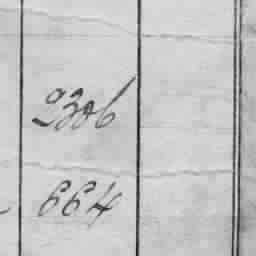 2306
664